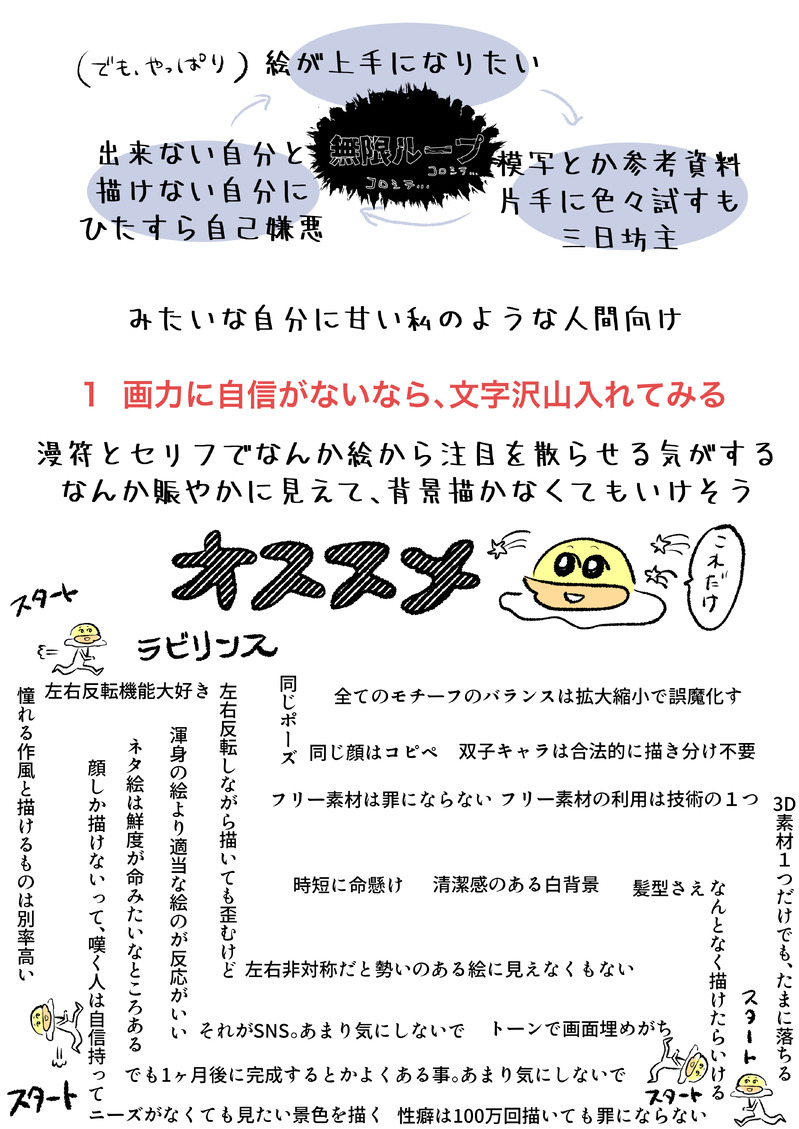 (でも、やっぱり)絵が上手になりたい
無限ループ
コロシテ…
コロシテ…
模写とか参考資料
片手に色々試すも
三日坊主
出来ない自分と
描けない自分に
ひたすら自己嫌悪
みたいな自分に甘い私のような人間向け
1 画力に自信がないなら、文字沢山入れてみる
漫符とセリフでなんか絵から注目を散らせる気がする
なんか賑やかに見えて、背景描かなくてもいけそう
オススメ
これだけ
スタート
ラビリンス
左右反転機能大好き
憧れる作風と描けるものは別率高い
顔しか描けないって、嘆く人は自信持って
ネタ絵は鮮度が命みたいなところある
渾身の絵より適当な絵のが反応がいい
左右反転しながら描いても歪むけど
同じポーズ
全てのモチーフのバランスは拡大縮小で誤魔化す
同じ顔はコピペ
双子キャラは合法的に描き分け不要
フリー素材は罪にならない
フリー素材の利用は技術の1つ
3D素材1つだけでも、たまに落ちる
時短に命懸け
清潔感のある白背景
髪型さえ
なんとなく描けたらいける
左右非対称だと勢いのある絵に見えなくもない
それがSNS。あまり気にしないで
トーンで画面埋めがち
スタート
でも1ヶ月後に完成するとかよくある事。あまり気にしないで
スタート
スタート
ニーズがなくても見たい景色を描く
性癖は100万回描いても罪にならない